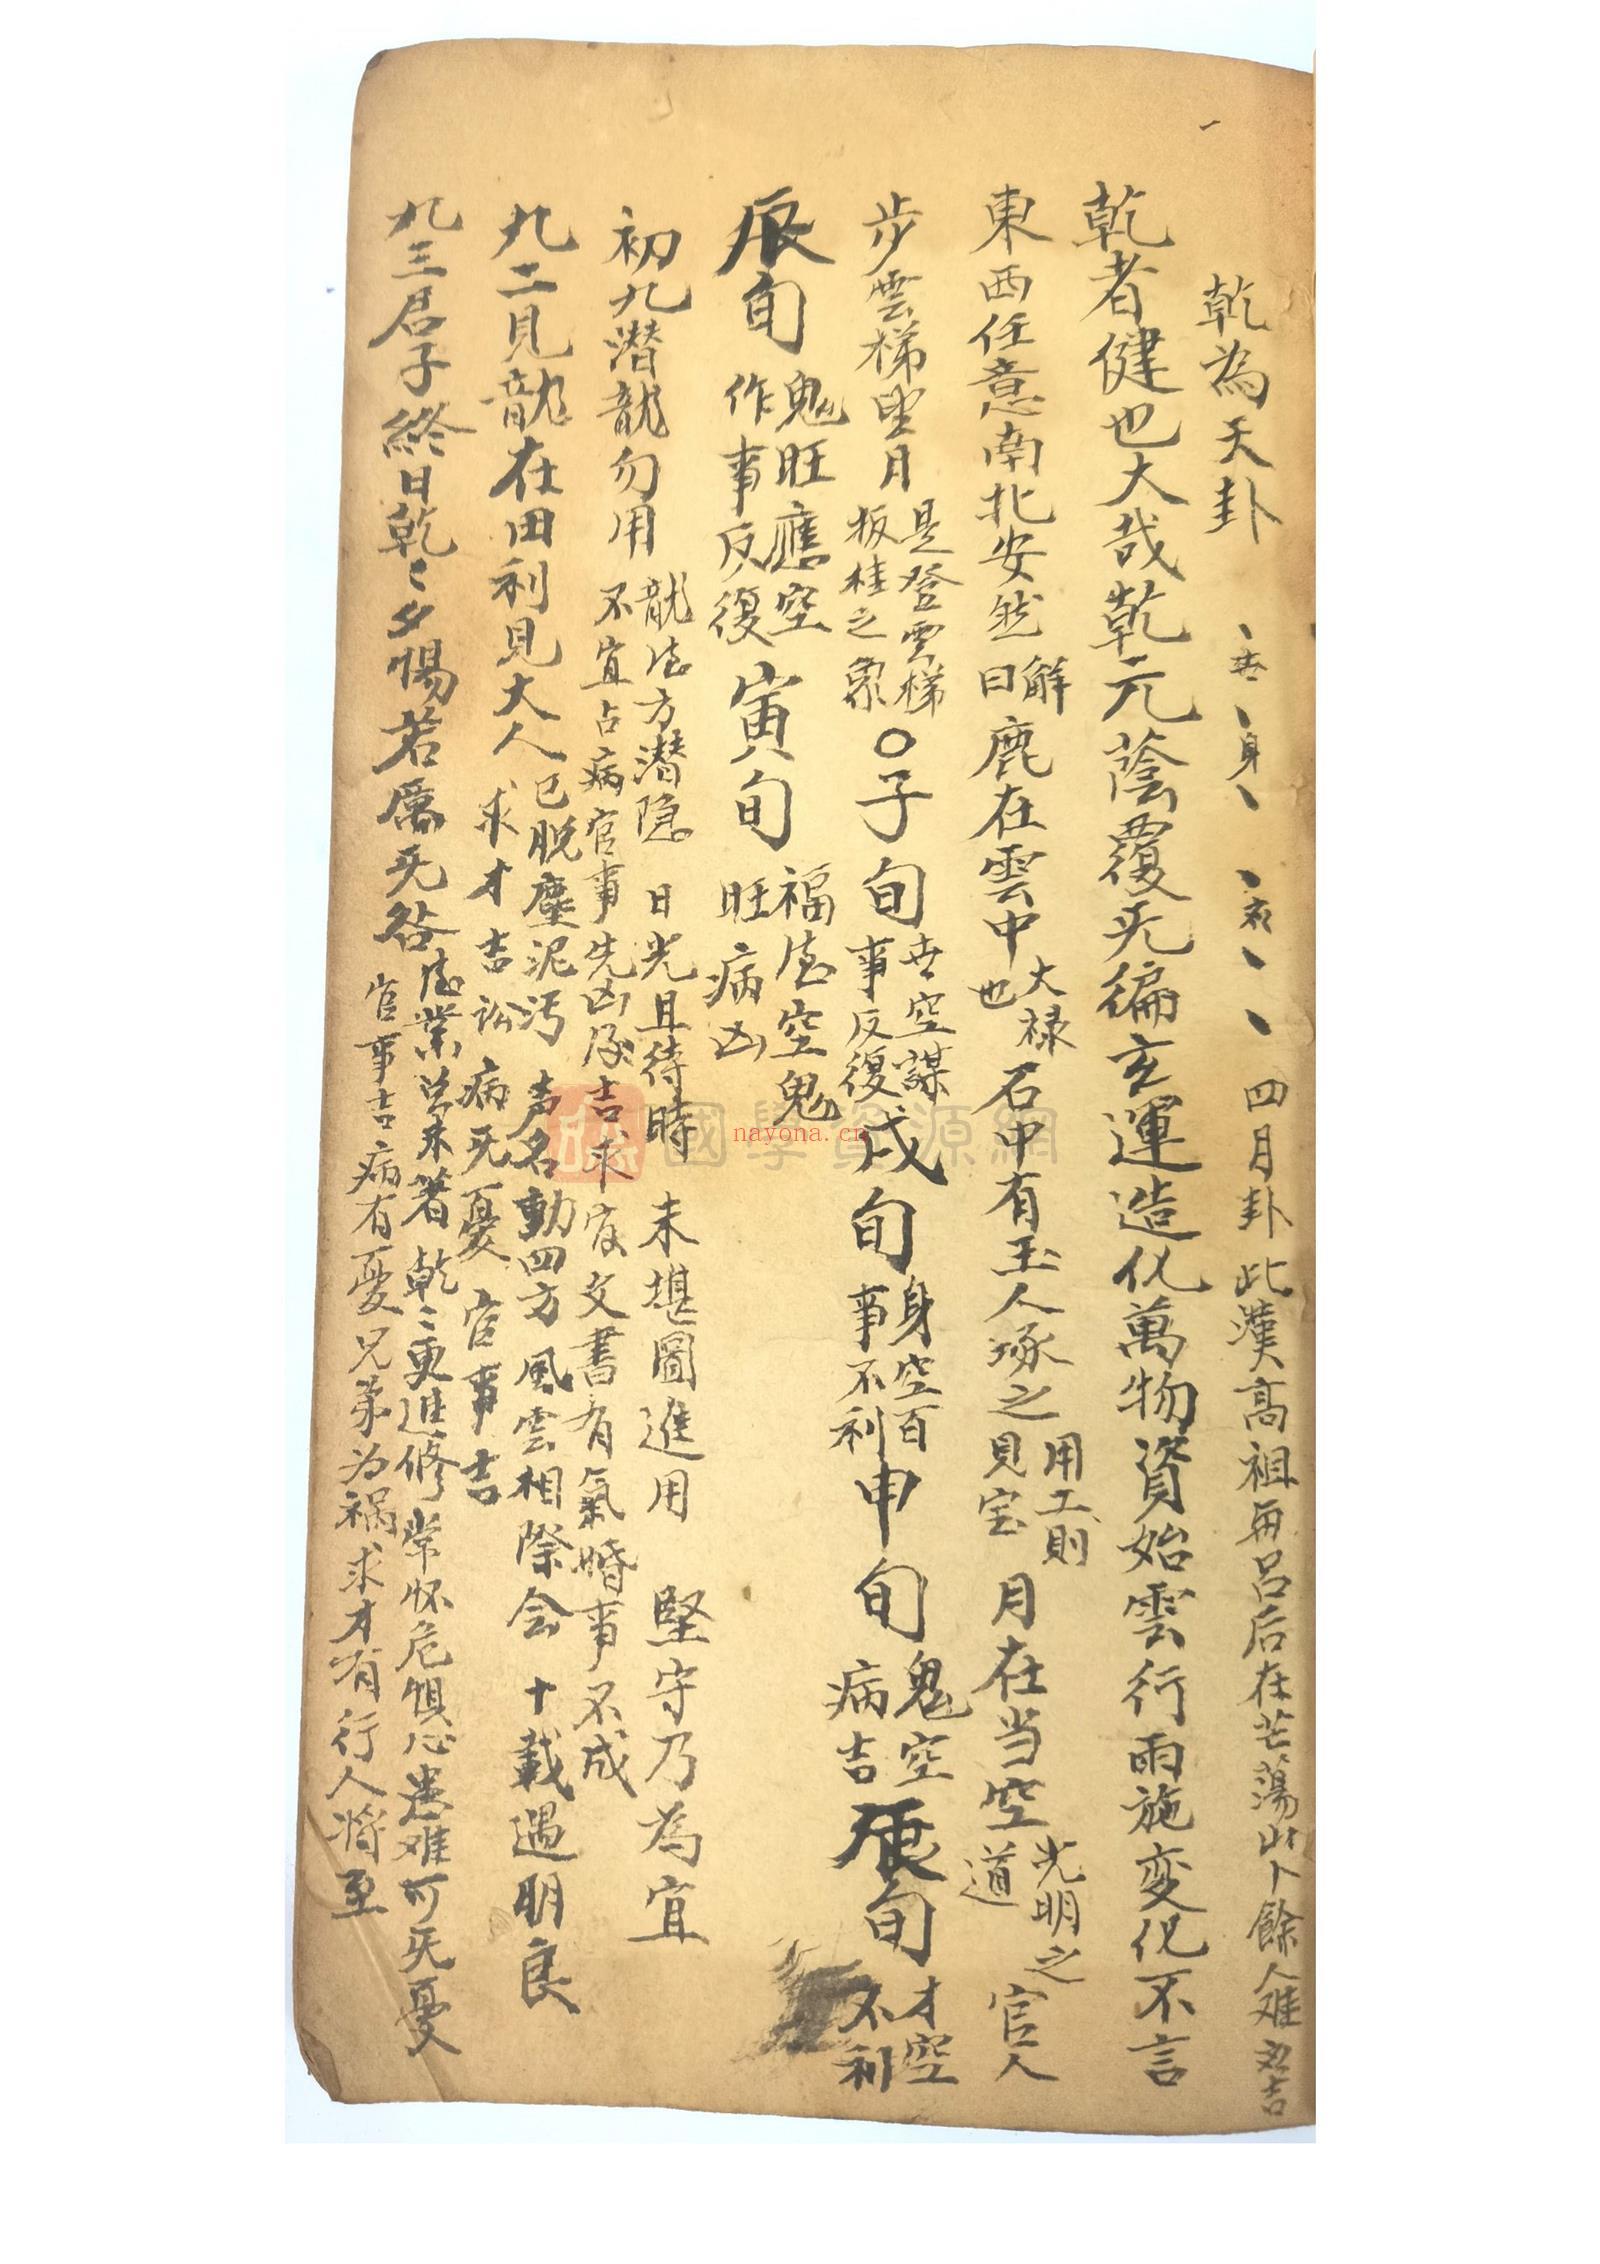 一
乾為天卦 、世、身、 、衣、、 四月卦 此漢高祖与呂后在芒蕩山卜 餘人难
乾者健也大哉乾元蔭覆旡徧玄運造化萬物資始雲行雨施変化不言
東西任意南北安然 解曰 鹿在雲中 大禄也 石中有玉人琢之 用工則見宝 月在当空 光明之道 官人
步雲梯望月 是登雲梯板桂之象 〇子旬 世空謀事反復 戌旬 身空百事不利 申旬 鬼空病吉 辰旬 才空不利
辰旬 鬼旺應空作事反復 寅旬 福徳空鬼旺病凶
初九潜龍勿用 龍徳方潜隐 日光且待時 未堪圖進用 堅守乃為宜
不宜占病官事先凶后吉求官文書有氣婚事不成
九二見龍在田利見大人 已脱塵泥污 声名動四方 風雲相際会 十載遇明良
求才吉訟病旡憂官事吉
九三君子終日乾〻夕惕若厲旡咎 徳業苐未著 乾〻更進修 常怀危惧心 患难可旡憂
官事吉病有憂兄苐为禍求才有行人将至
國學資源網
nayona.cn